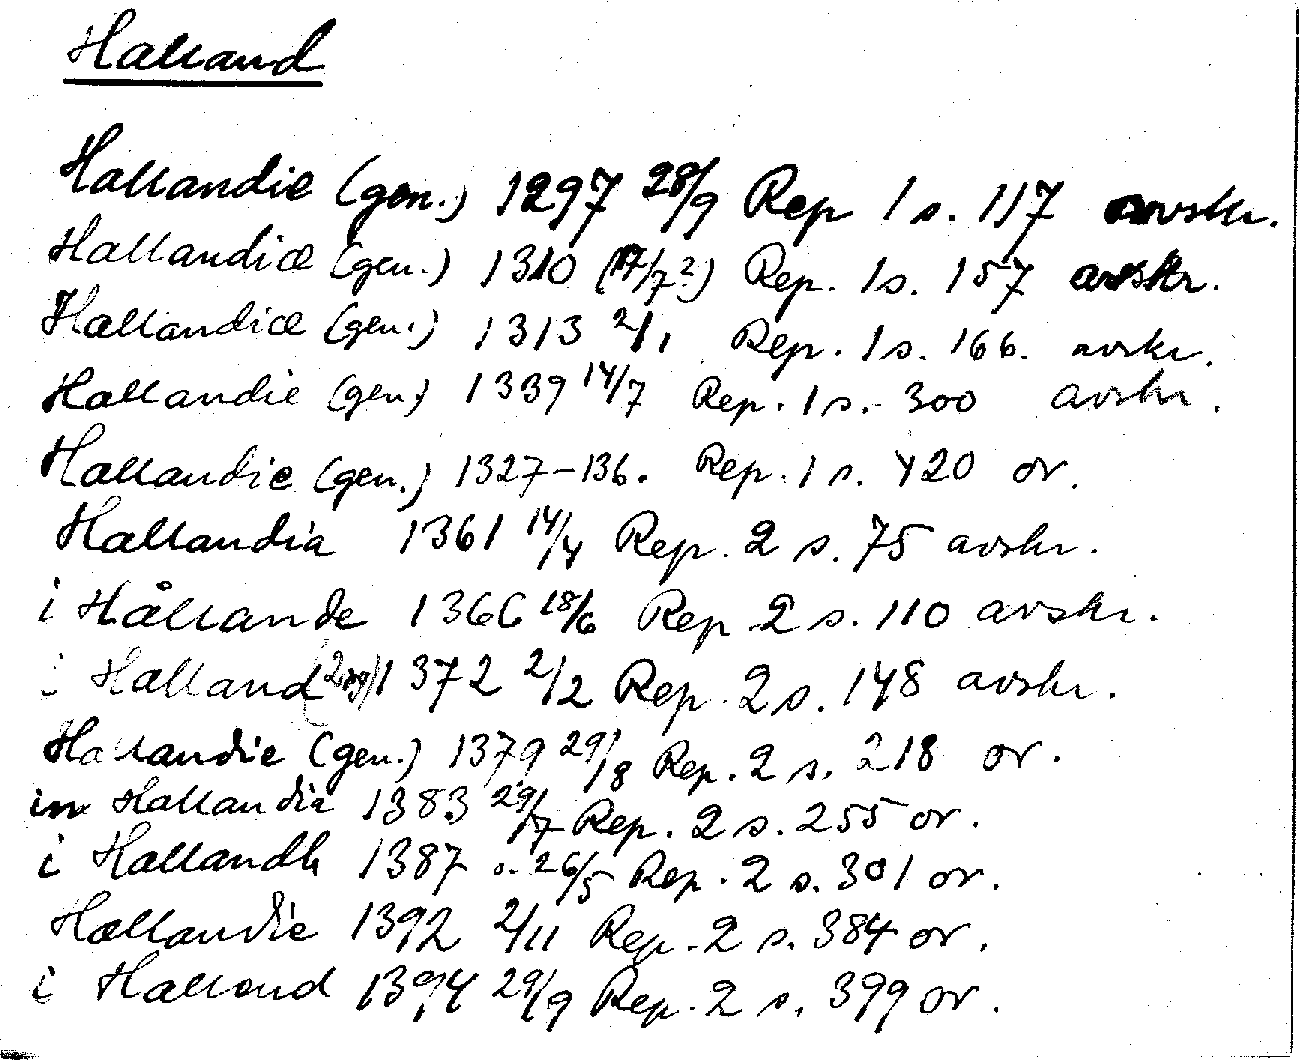 Halland
Hallandie (gen.) 1297 28/9 Rep 1 s. 117 avskr.
Hallandiæ (gen.) 1310 (17/7?) Rep. 1 s. 157 avskr.
Hallandiæ (gen.) 1313 2/1 Rep. 1 s. 166. avskr.
Hallandie (gen) 1339 14/7 Rep. 1 s. 300 avskr.
Hallandie (gen.) 1327-136. Rep. 1 s. 420 or.
Hallandia 1361 14/4 Rep. 2 s. 75 avskr.
i Hållande 1366 18/6 Rep 2 s. 110 avskr.
i Halland 1372 2/2 Rep. 2 s. 148 avskr.
Hallandie (gen.) 1379 29/8 Rep. 2 s. 218 or.
in Hallandia 1383 29/7 Rep. 2 s. 255 or.
i Hallandh 1387 o. 26/5 Rep. 2 s. 301 or.
Hallandie 1392 2/11 Rep. 2 s. 384 or.
i Halland 1394 29/9 Rep. 2 s. 399 or.